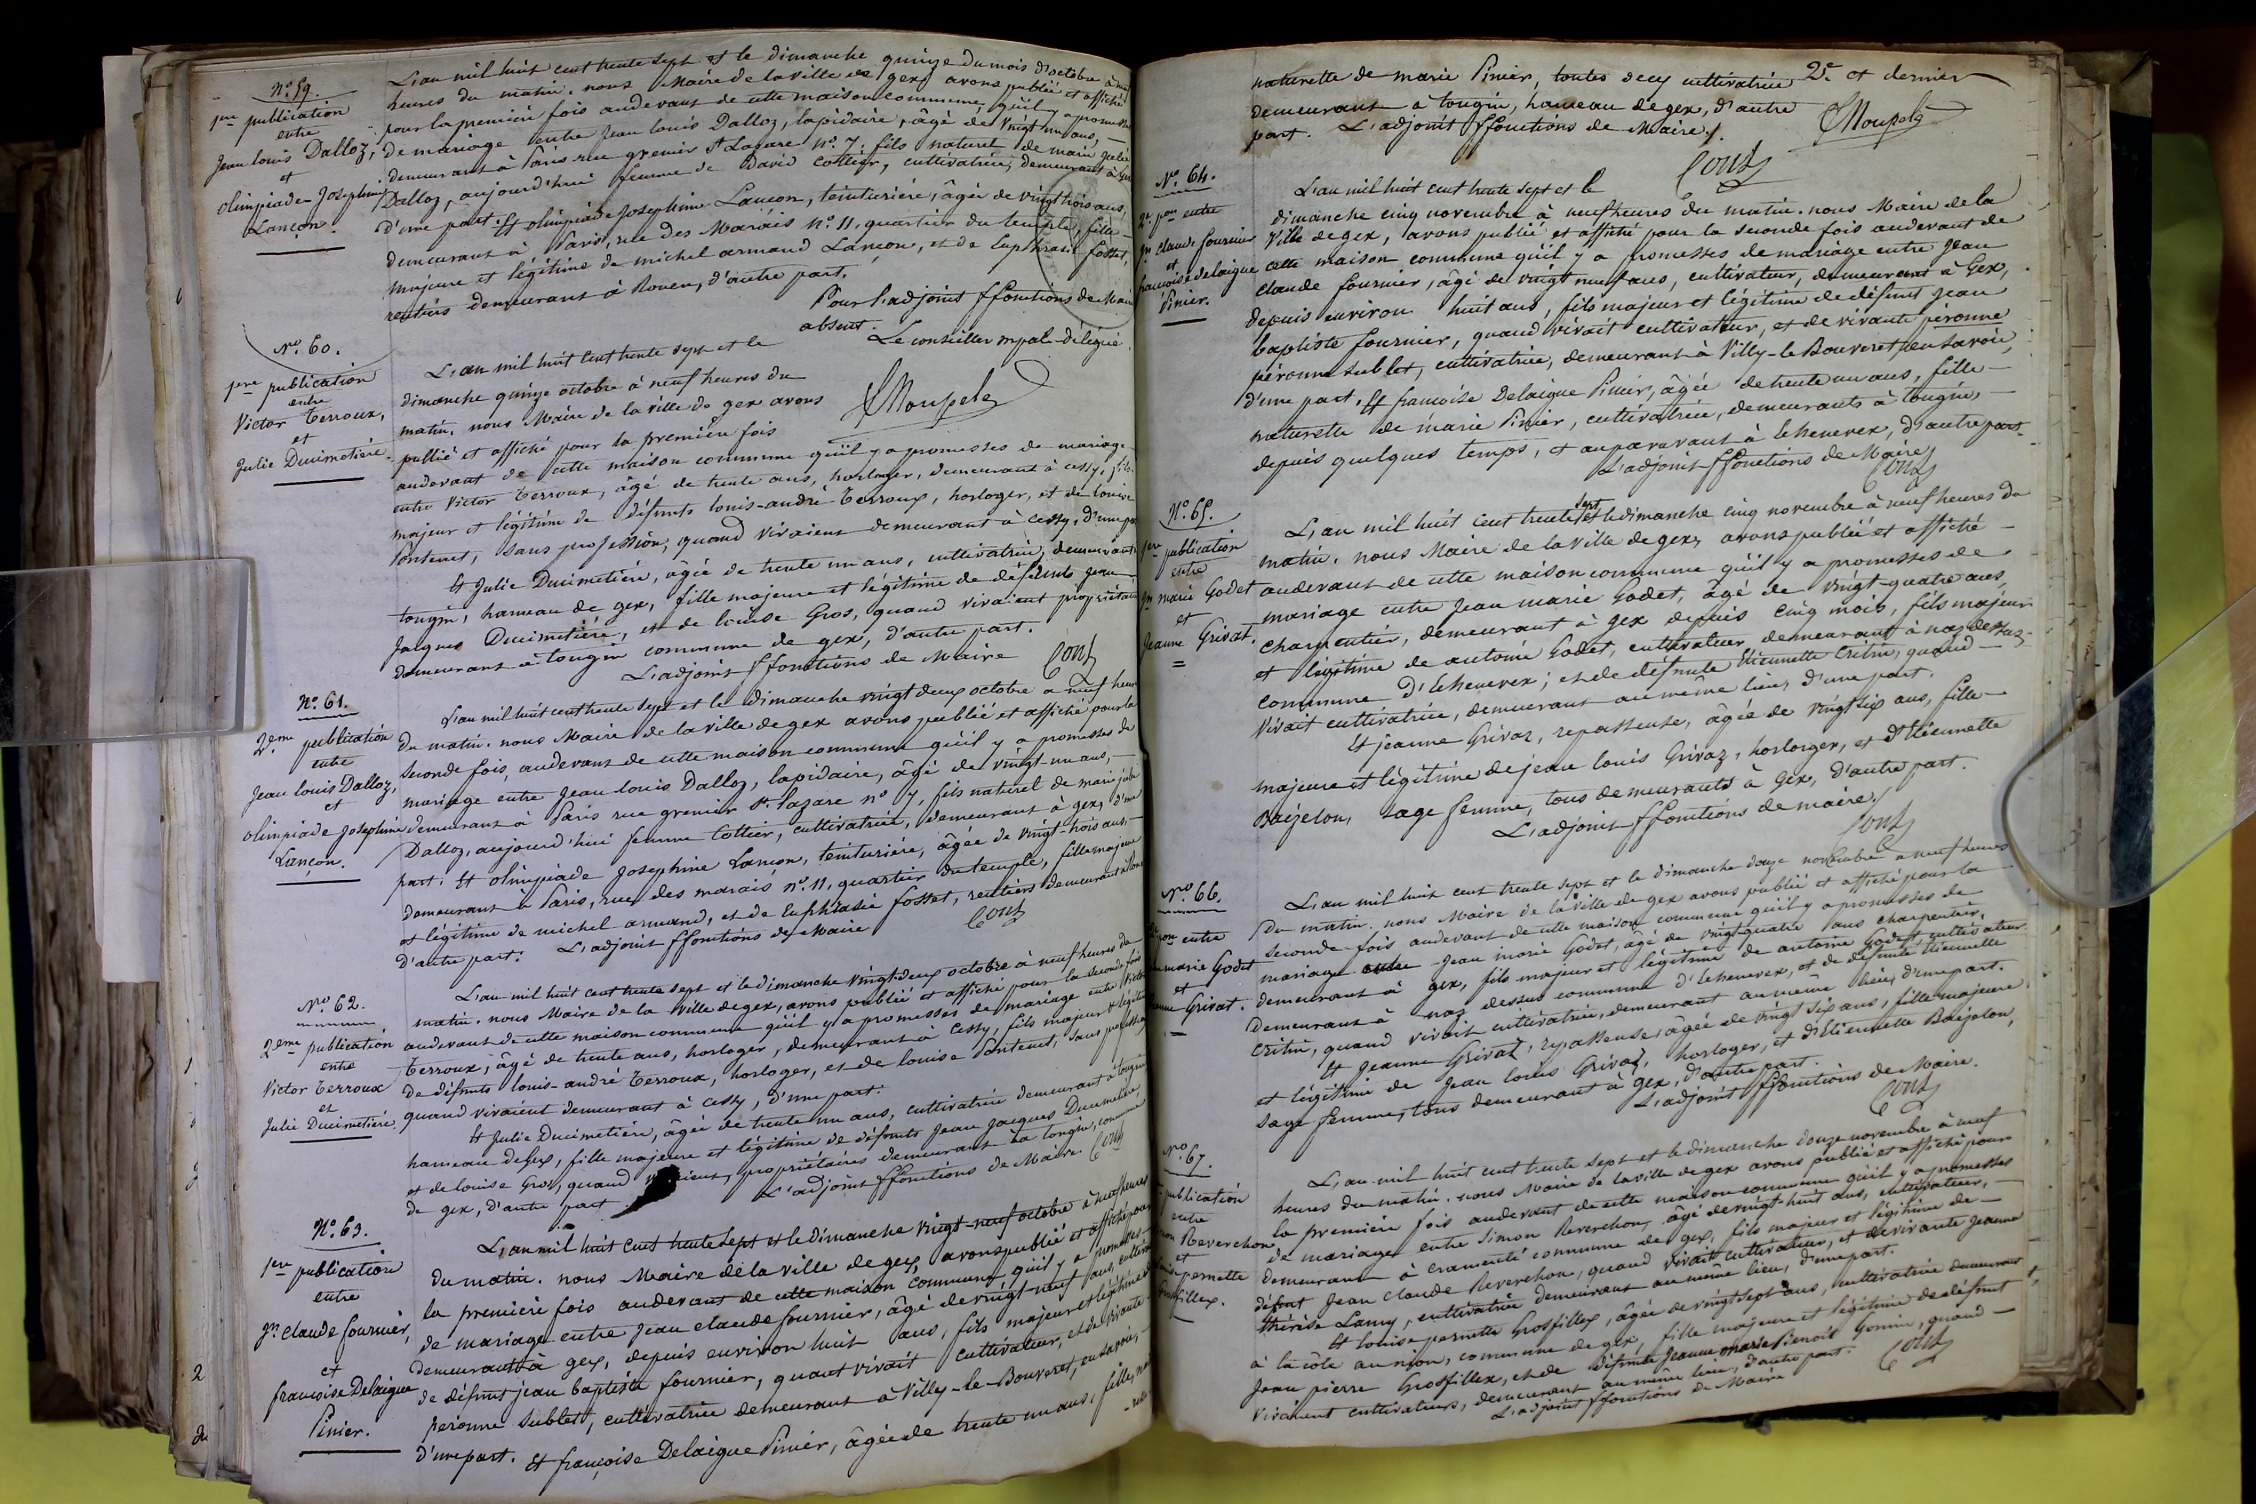 N.o 59.
1ere publication
entre
Jean louis Dalloz,
et
olimpiade-Josephine
Lançon.
L'an mil huit cent trente sept et le dimanche quinze du mois d'octobre à neuf
heures du matin. nous Maire de la ville de gex avons publié et affiché
pour la première fois audevant de cette maison commune, qu'il y a promesses
de mariage entre Jean louis Dalloz, lapidaire, âgé de vingt un ans,
demeurant à Paris rue grenier St Lazare n.o 7, fils naturel de marie julie
Dalloz, aujourd'hui femme de David Collier, cultivatrice, demeurant à Gex
d'une part. Et olimpiade Josephine Lançon, teinturière, âgée de vingt trois ans,
demeurant à Paris, rue des Marais n.o 11, quartier du temple, fille
majeure et légitime de michel armand Lançon, et de Euphrasie fosset,
rentiers demeurant à Rouen, d'autre part.
Pour l'adjoint ffonctions de Maire
absent.
Le conseiller mpal délégué.
N.o 60.
1ere publication
entre
Victor Terroux,
et
Julie Ducimetière.
L'an mil huit cent trente sept et le
dimanche quinze octobre à neuf heures du
matin. nous Maire de la ville de gex avons
publié et affiché pour la première fois
audevant de cette maison commune qu'il y a promesses de mariage
entre Victor Terroux, âgé de trente ans, horloger, demeurant à cessy, fils
majeur et légitime de défunts louis-andré Terroux, horloger, et de louise
Pontenet, sans profession, quand vivaient demeurant à cessy, d'une part
Et Julie Ducimetière, âgée de trente un ans, cultivatrice, demeurant
tougin, hameau de gex, fille majeure et légitime de défunts jean
Jacques Ducimetière, et de louise Gros, quand vivaient propriétaires
demeurant à tougin commune de gex, d'autre part.
L'adjoint ffonctions de Maire
N.o 61.
2eme publication
entre
Jean louis Dalloz,
et
olimpiade Josephine
Lançon.
L'an mil huit cent trente sept et le dimanche vingt deux octobre à neuf heures
du matin. nous Maire de la ville de gex avons publié et affiché pour la
seconde fois, audevant de cette maison commune qu'il y a promesses de
mariage entre Jean louis Dalloz, lapidaire, âgé de vingt un ans,
demeurant à Paris rue grenier St lazare n.o 7, fils naturel de marie julie
Dalloz, aujourd'hui femme Collier, cultivatrice, demeurant à gex, d'une
part. Et olimpiade Josephine Lançon, teinturière, âgée de vingt-trois ans,
demeurant à Paris, rue des marais, n.o 11, quartier du temple, fille majeure
et légitime de michel armand, et de Euphrasie fosset, rentiers demeurant à
d'autre part. L'adjoint ffonctions de Maire
N.o 62.
2eme publication
entre
Victor Terroux
et
Julie Ducimetière.
L'an mil huit cent trente sept et le dimanche vingt-deux octobre à neuf heures du
matin. nous Maire de la ville de gex, avons publié et affiché pour la seconde fois
audevant de cette maison commune qu'il y a promesses de mariage entre Victor
Terroux, âgé de trente ans, horloger, demeurant à Cessy, fils majeur et légitime
de défunts louis-andré Terroux, horloger, et de louise Pontenet, sans profession
quand vivaient demeurant à Cessy, d'une part.
Et Julie Ducimetière, âgée de trente un ans, cultivatrice demeurant à tougin
hameau de Gex, fille majeure et légitime de défunts Jean Jacques Ducimetière,
et de louise Gros, quand propriétaires demeurant à tougin, commune
de gex, d'autre part. L'adjoint ffonctions de Maire.
N.o 63.
1ere publication
entre
Jn claude fournier,
et
françoise Delaigue
Pinier.
L'an mil huit cent trente sept et le dimanche vingt-neuf octobre à neuf heures
du matin. nous Maire de la ville de gex, avons publié et affiché pour
la première fois audevant de cette maison commune, qu'il y a promesses
de mariage entre Jean claude fournier, âgé de vingt-neuf ans, cultivateur
demeurant à gex, depuis environ huit ans, fils majeur et légitime
de défunt jean baptiste fournier, quant vivait cultivateur, et de vivante
peronne sublet, cultivatrice demeurant à Villy-le-Bouveret, en savoie,
d'une part. Et françoise Delaigue Pinier, âgée de trente un ans, fille,
naturelle de marie Pinier, toutes decy cultivatrice
demeurant à tougin, hameau de gex, d'autre
part. L'adjoint ffonctions de Maire.
2e et dernier
N.o 64.
2e pon entre
Jn claude fournier
et
françoise delaigue
Pinier.
L'an mil huit cent trente sept et le
dimanche cinq novembre à neuf heures du matin. nous Maire de la
Ville de gex, avons publié et affiché pour la seconde fois audevant de
cette maison commune qu'il y a promesses de mariage entre Jean
Claude fournier, âgé de vingt neuf ans, cultivateur, demeurant à Gex,
depuis environ huit ans, fils majeur et légitime de défunt jean
baptiste fournier, quand vivait cultivateur, et de vivante peronne
péronne sublet, cultivatrice, demeurant à Villy-le-Bouveret en savoie,
d'une part, Et françoise Delaigue Pinier, âgée de trente un ans, fille
naturelle de marie Pinier, cultivatrice, demeurants à tougin,
depuis quelques temps, et auparavant à Echenevex, d'autre part.
L'adjoint ffonctions de Maire
N.o 65.
publication
entre
Jn marie Godet
et
Jeanne Grivat.
L'an mil huit cent trente sept et le dimanche cinq novembre à neuf heures du
matin. nous Maire de la ville de gex, avons publié et affiché
audevant de cette maison commune qu'il y a promesses de
mariage entre Jean marie Godet, âgé de vingt-quatre ans,
charpentier, demeurant à gex depuis cinq mois, fils majeur
et légitime de antoine Godet, cultivateur demeurant à naz dessus
commune d'Echenevex; et de défunte Etiennette Critin, quand
vivait cultivatrice, demeurant au même lieu, d'une part.
Et jeanne Grivaz, repasseuse, âgée de vingt six ans, fille
majeure et légitime de jean louis Grivaz, horloger, et d'Etiennette
Baijelon, sage femme, tous demeurants à Gex, d'autre part.
L'adjoint ffonctions de maire.
N.o 66.
pon entre
marie Godet
et
Grivat.
L'an mil huit cent trente sept et le dimanche douze novembre à neuf heures
du matin. nous Maire de la ville de gex avons publié et affiché pour la
seconde fois audevant de cette maison commune qu'il y a promesses de
mariage entre Jean marie Godet, âgé de vingt quatre ans charpentier,
demeurant à gex, fils majeur et légitime de antoine Godet, cultivateur
demeurant à naz dessus commune d'Echenevex, et de défunte Etiennette
Critin, quand vivait cultivatrice, demeurant au même lieu, d'une part.
Et Jeanne Grivaz, repasseuse, âgée de vingt six ans, fille majeure
et légitime de Jean louis Grivaz, horloger, et d'Etiennette Baijelon,
sage femme, tous demeurant à gex, d'autre part.
L'adjoint ffonctions de Maire.
N.o 67.
publication
entre
Reverchon
et
pernette
L'an mil huit cent trente sept et le dimanche douze novembre à neuf
heures du matin. nous Maire de la ville de gex avons publié et affiché pour
la première fois audevant de cette maison commune qu'il y a promesses
de mariage entre Simon Reverchon, âgé de vingt huit ans, cultivateur,
demeurant à cramenté commune de gex, fils majeur et légitime de
défunt Jean Claude Reverchon, quand vivait cultivateur, et de vivante Jeanne
thérèse Lamy, cultivatrice demeurant au même lieu, d'une part.
Et louise pernette Grosfillex, âgée de vingt sept ans, cultivatrice demeurant
à la côte au nion, commune de gex, fille majeure et légitime de défunt
Jean pierre Grosfillex, et de défunte Jeanne marie Benoit Gonin, quand
vivaient cultivateurs, demeurant au même lieu, d'autre part.
L'adjoint ffonctions de Maire